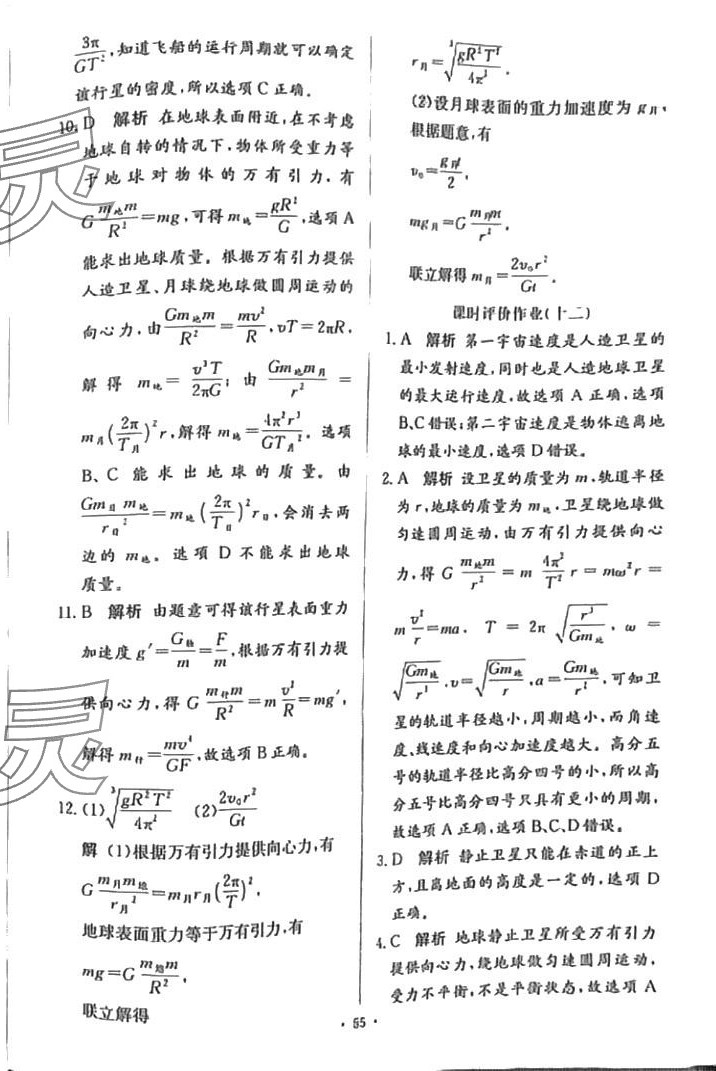 $\frac{3\pi}{GT^2}$,知道飞船的运行周期就可以确定
该行星的密度,所以选项C正确。
10. D 解析 在地球表面附近,在不考虑
地球自转的情况下,物体所受重力等
于地球对物体的万有引力,有
$G\frac{m_{地}m}{R^2}=mg$,可得$m_{地}=\frac{gR^2}{G}$,选项A
能求出地球质量。根据万有引力提供
人造卫星、月球绕地球做圆周运动的
向心力,由$\frac{Gm_{地}m}{R^2}=\frac{mv^2}{R}$,$vT=2\pi R$,
解得$m_{地}=\frac{v^3T}{2\pi G}$;由$\frac{Gm_{地}m_{月}}{r^2}=$
$m_{月}(\frac{2\pi}{T_{月}})^2r$,解得$m_{地}=\frac{4\pi^2r^3}{GT_{月}^2}$。选项
B、C能求出地球的质量。由
$\frac{Gm_{日}m_{地}}{r_{日}^2}=m_{地}(\frac{2\pi}{T_{日}})^2r_{日}$,会消去两
边的$m_{地}$。选项D不能求出地球
质量。
11. B 解析 由题意可得该行星表面重力
加速度$g'=\frac{G_{物}}{m}=\frac{F}{m}$,根据万有引力提
供向心力,得$G\frac{m_{行}m}{R^2}=m\frac{v^2}{R}=mg'$,
解得$m_{行}=\frac{mv^4}{GF}$,故选项B正确。
12. (1)$\sqrt[3]{\frac{gR^2T^2}{4\pi^2}}$ (2)$\frac{2v_0r^2}{Gt}$
解 (1)根据万有引力提供向心力,有
$G\frac{m_{月}m_{地}}{r_{月}^2}=m_{月}r_{月}(\frac{2\pi}{T})^2$,
地球表面重力等于万有引力,有
$mg=G\frac{m_{地}m}{R^2}$,
联立解得
$r_{月}=\sqrt[3]{\frac{gR^2T^2}{4\pi^2}}$。
(2)设月球表面的重力加速度为$g_{月}$,
根据题意,有
$v_0=\frac{g_{月}t}{2}$,
$mg_{月}=G\frac{m_{月}m}{r^2}$,
联立解得$m_{月}=\frac{2v_0r^2}{Gt}$。
课时评价作业(十二)
1. A 解析 第一宇宙速度是人造卫星的
最小发射速度,同时也是人造地球卫星
的最大运行速度,故选项A正确,选项
B、C错误;第二宇宙速度是物体逃离地
球的最小速度,选项D错误。
2. A 解析 设卫星的质量为m,轨道半径
为r,地球的质量为$m_{地}$,卫星绕地球做
匀速圆周运动,由万有引力提供向心
力,得$G\frac{m_{地}m}{r^2}=m\frac{4\pi^2}{T^2}r=m\omega^2r=$
$m\frac{v^2}{r}=ma$,$T=2\pi\sqrt{\frac{r^3}{Gm_{地}}}$,$\omega=$
$\sqrt{\frac{Gm_{地}}{r^3}}$,$v=\sqrt{\frac{Gm_{地}}{r}}$,$a=\frac{Gm_{地}}{r^2}$,可知卫
星的轨道半径越小,周期越小,而角速
度、线速度和向心加速度越大。高分五
号的轨道半径比高分四号的小,所以高
分五号比高分四号只具有更小的周期,
故选项A正确,选项B、C、D错误。
3. D 解析 静止卫星只能在赤道的正上
方,且离地面的高度是一定的,选项D
正确。
4. C 解析 地球静止卫星所受万有引力
提供向心力,绕地球做匀速圆周运动,
受力不平衡,不是平衡状态,故选项A
· 65 ·
灵
灵